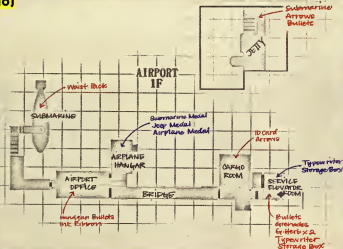 Submarine
Arrows
Bullets
JETTY
AIRPORT
1F
Waist Pack
SUBMARINE
Submarine Medal
Jeep Medal
Airplane Medal
AIRPLANE
HANGAR
ID Card
Arrows
CARGO
ROOM
Typewriter
Storage Box
AIRPORT
OFFICE
BRIDGE
SERVICE
ELEVATOR
ROOM
Handgun Bullets
Ink Ribbon
Bullets
Grenades
G. Herb x 2
Typewriter
Storage Box